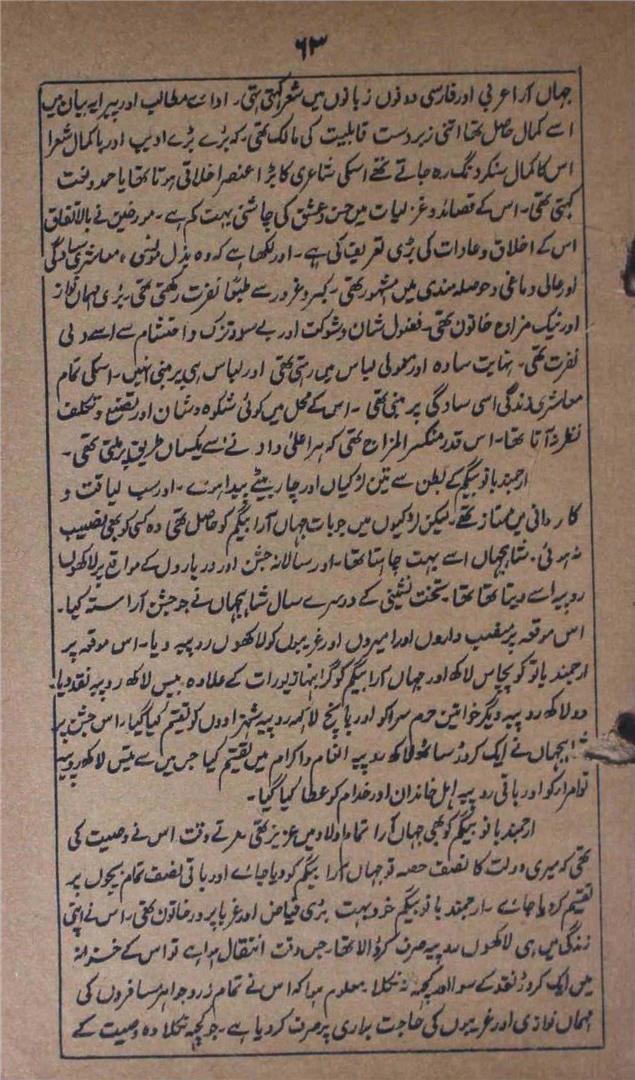 ۶۳
جہاں آرا عربی اور فارسی دونوں زبانوں میں شعر کہتی تھی۔ ادائے مطالب اور پیرایہ بیان میں
اسے کمال حاصل تھا اتنی زبردست قابلیت کی مالک تھی۔ کہ بڑے بڑے ادیب اور باکمال شعرا
اس کا کمال سنکر دنگ رہ جاتے تھے اسکی شاعری کا بڑا عنصر اخلاقی ہوتا تھا یا حمد و نعت
کہتی تھی۔ اس کے قصائد و غزلیات میں حسن و عشق کی چاشنی بہت کم ہے۔ مورخین نے بالاتفاق
اس کے اخلاق و عادات کی بڑی تعریف کی ہے۔ اور لکھا ہے کہ وہ بذل نویسی، معاشرتی سادگی
اور عالی دماغی و حوصلہ مندی میں مشہور تھی۔ کبر و غرور سے طبعاً نفرت رکھتی تھی۔ بڑی مہماں نواز
اور نیک مزاج خاتون تھی۔ فضول شان و شوکت اور بے سود تزک و احتشام سے اسے دلی
نفرت تھی۔ نہایت سادہ اور معمولی لباس میں رہتی تھی اور لباس ہی پر مبنی نہیں۔ اسکی تمام
معاشرتی زندگی اسی سادگی پر مبنی تھی۔ اس کے محل میں کوئی شکوہ و شان اور تصنع و تکلف
نظر نہ آتا تھا۔ اس قدر منکسر المزاج تھی کہ ہر اعلیٰ و ادنےٰ سے یکساں طریق پر ملتی تھی۔
ارجمند بانو بیگم کے بطن سے تین لڑکیاں اور چار بیٹے پیدا ہوئے۔ اور سب لیاقت و
کاردانی میں ممتاز تھے۔ لیکن لڑکیوں میں جو بات جہاں آرا بیگم کو حاصل تھی وہ کسی کو بھی نصیب
نہ ہوئی۔ شاہجہاں اسے بہت چاہتا تھا۔ اور سالانہ جشن اور درباروں کے مواقع پر لاکھوں
روپیہ اسے دیتا تھا تھا۔ تخت نشینی کے دوسرے سال شاہجہاں نے جو جشن آراستہ کیا۔
اس موقعہ پر منصب داروں اور امیروں اور غریبوں کو لاکھوں روپیہ دیا۔ اس موقعہ پر
ارجمند بانو کو پچاس لاکھ اور جہاں آرا بیگم کو گرانبہا زیورات کے علاوہ بیس لاکھ روپیہ نقد دیا۔
دو لاکھ روپیہ دیگر خواتین حرم سرا کو اور پانچ لاکھ روپیہ شہزادوں کو تقسیم کیا گیا۔ اس جشن پر
شاہجہاں نے ایک کروڑ ساٹھ لاکھ روپیہ انعام و اکرام میں تقسیم کیا جس میں سے تیس لاکھ روپیہ
تو امراء کو اور باقی روپیہ اہل خاندان اور خدام کو عطا کیا گیا۔
ارجمند بانو بیگم کو بھی جہاں آرا تمام اولاد میں عزیز تھی مرتے وقت اس نے وصیت کی
تھی کہ میری دولت کا نصف حصہ تو جہاں آرا بیگم کو دیا جائے اور باقی نصف تمام بچوں پر
تقسیم کر دیا جائے۔ ارجمند بانو بیگم خود بہت بڑی فیاض اور غربا پرور خاتون تھی۔ اس نے اپنی
زندگی میں ہی لاکھوں روپیہ صرف کر ڈالا تھا۔ جس وقت انتقال ہوا ہے تو اس کے خزانہ
میں ایک کروڑ نقد کے سوا اور کچھ نہ نکلا۔ معلوم ہوا کہ اس نے تمام زر و جواہر مسافروں کی
مہماں نوازی اور غریبوں کی حاجت براری پر صرف کر دیا ہے۔ جو کچھ نکلا وہ وصیت کے